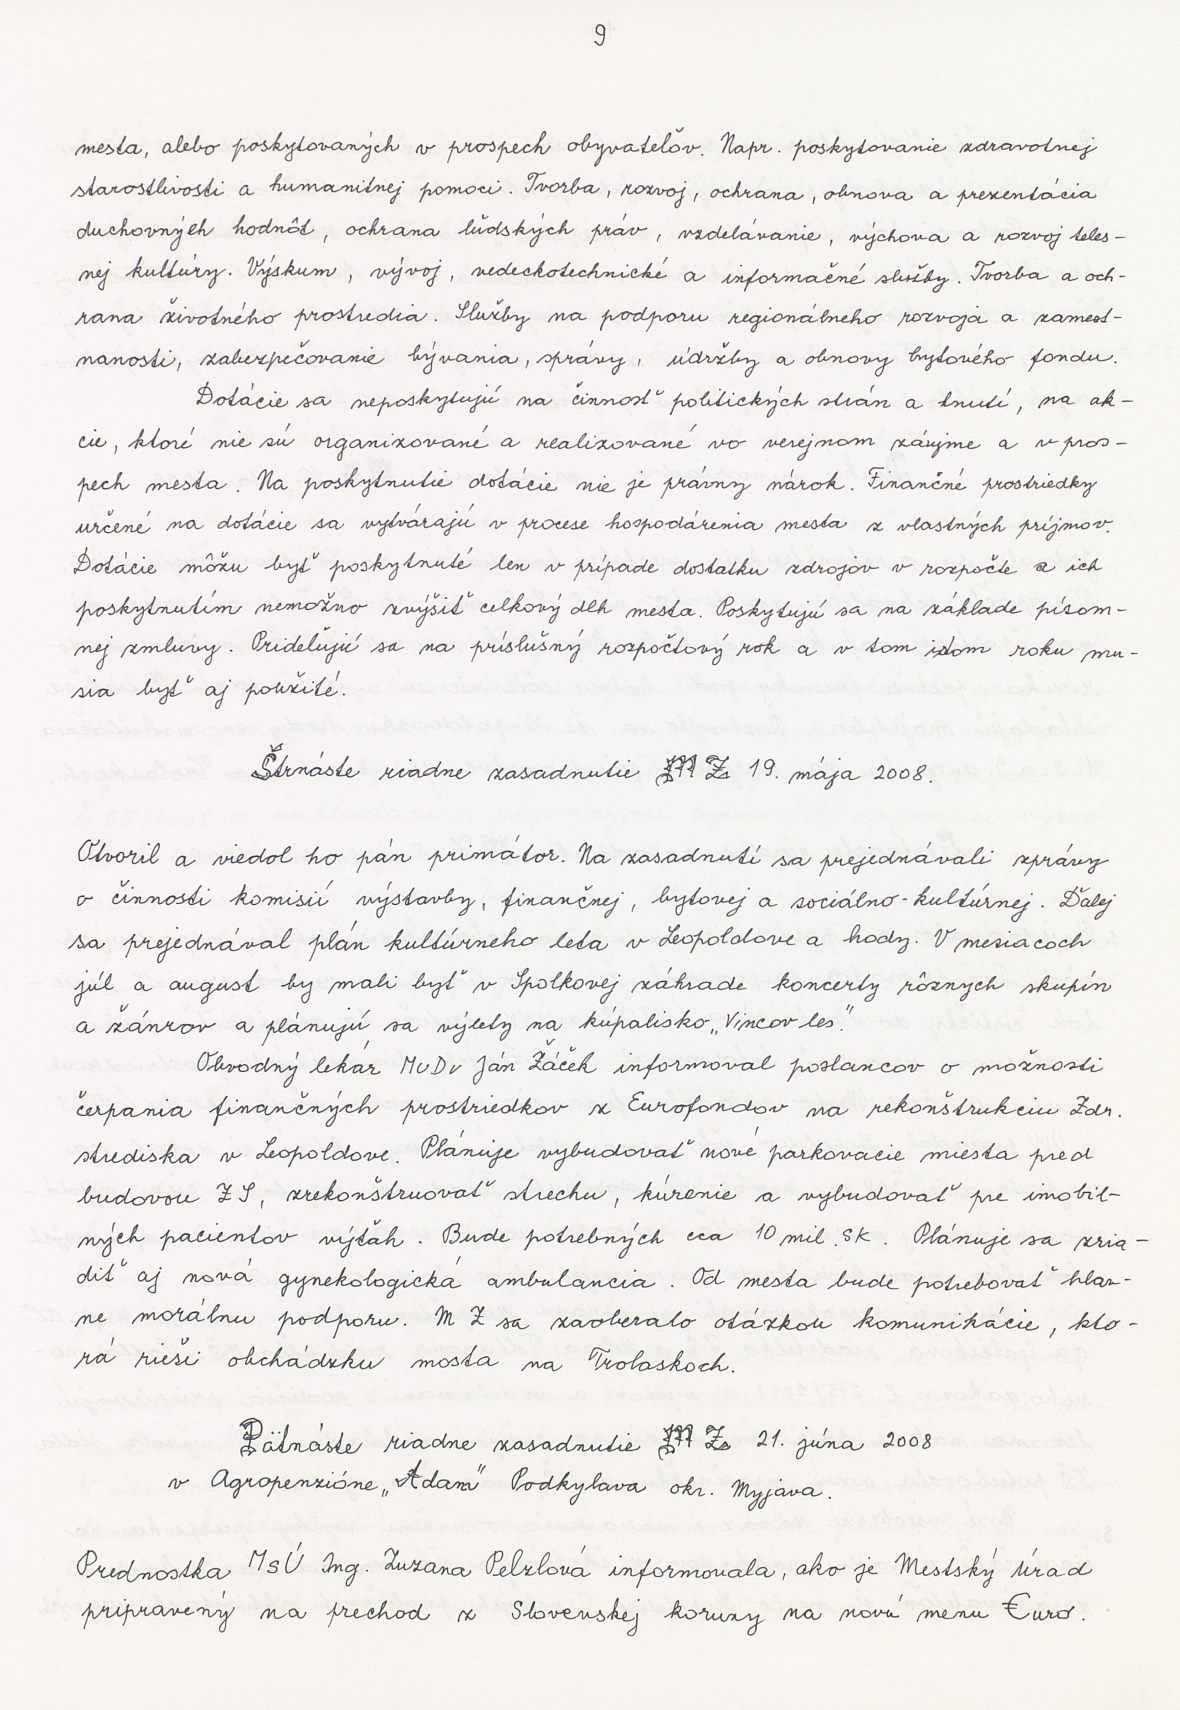 9
mesta, alebo poskytovaných v prospech obyvateľov. Napr. poskytovanie zdravotnej
starostlivosti a humanitnej pomoci. Tvorba, rozvoj, ochrana, obnova a prezentácia
duchovných hodnôt, ochrana ľudských práv, vzdelávanie, výchova a rozvoj teles-
nej kultúry. Výskum, vývoj, vedeckotechnické a informačné služby. Tvorba a och-
rana životného prostredia. Služby na podporu regionálneho rozvoja a zamest-
nanosti, zabezpečovanie bývania, správy, údržby a obnovy bytového fondu.
Dotácie sa neposkytujú na činnosť politických strán a hnutí, na ak-
cie, ktoré nie sú organizované a realizované vo verejnom záujme a v pros-
pech mesta. Na poskytnutie dotácie nie je právny nárok. Finančné prostriedky
určené na dotácie sa vytvárajú v procese hospodárenia mesta z vlastných príjmov.
Dotácie môžu byť poskytnuté len v prípade dostatku zdrojov v rozpočte a ich
poskytnutím nemožno zvýšiť celkový dlh mesta. Poskytujú sa na základe písom-
nej zmluvy. Prideľujú sa na príslušný rozpočtový rok a v tom istom roku mu-
sia byť aj použité.
Štrnáste riadne zasadnutie MZ 19. mája 2008.
Otvoril a viedol ho pán primátor. Na zasadnutí sa prejednávali zprávy
o činnosti komisií výstavby, finančnej, bytovej a sociálno-kultúrnej. Ďalej
sa prejednával plán kultúrneho leta v Leopoldove a hody. V mesiacoch
júl a august by mali byť v Spolkovej záhrade koncerty rôznych skupín
a žánrov a plánujú sa výlety na kúpalisko „Vincov les."
Obvodný lekár MUDr Ján Žáček informoval poslancov o možnosti
čerpania finančných prostriedkov z Eurofondov na rekonštrukciu Zdr.
strediska v Leopoldove. Plánuje vybudovať nové parkovacie miesta pred
budovou ZS, zrekonštruovať strechu, kúrenie a vybudovať pre imobil-
ných pacientov výťah. Bude potrebných cca 10 mil. SK. Plánuje sa zria-
diť aj nová gynekologická ambulancia. Od mesta bude potrebovať hlav-
ne morálnu podporu. MZ sa zaoberalo otázkou komunikácie, kto-
rá rieši obchádzku mosta na Trolaskoch.
Pätnáste riadne zasadnutie MZ 21. júna 2008
v Agropenzióne „Adam" Podkylava okr. Myjava.
Prednostka MsÚ Ing. Zuzana Pelzlová informovala, ako je Mestský Úrad
pripravený na prechod z Slovenskej koruny na novú menu €uro.